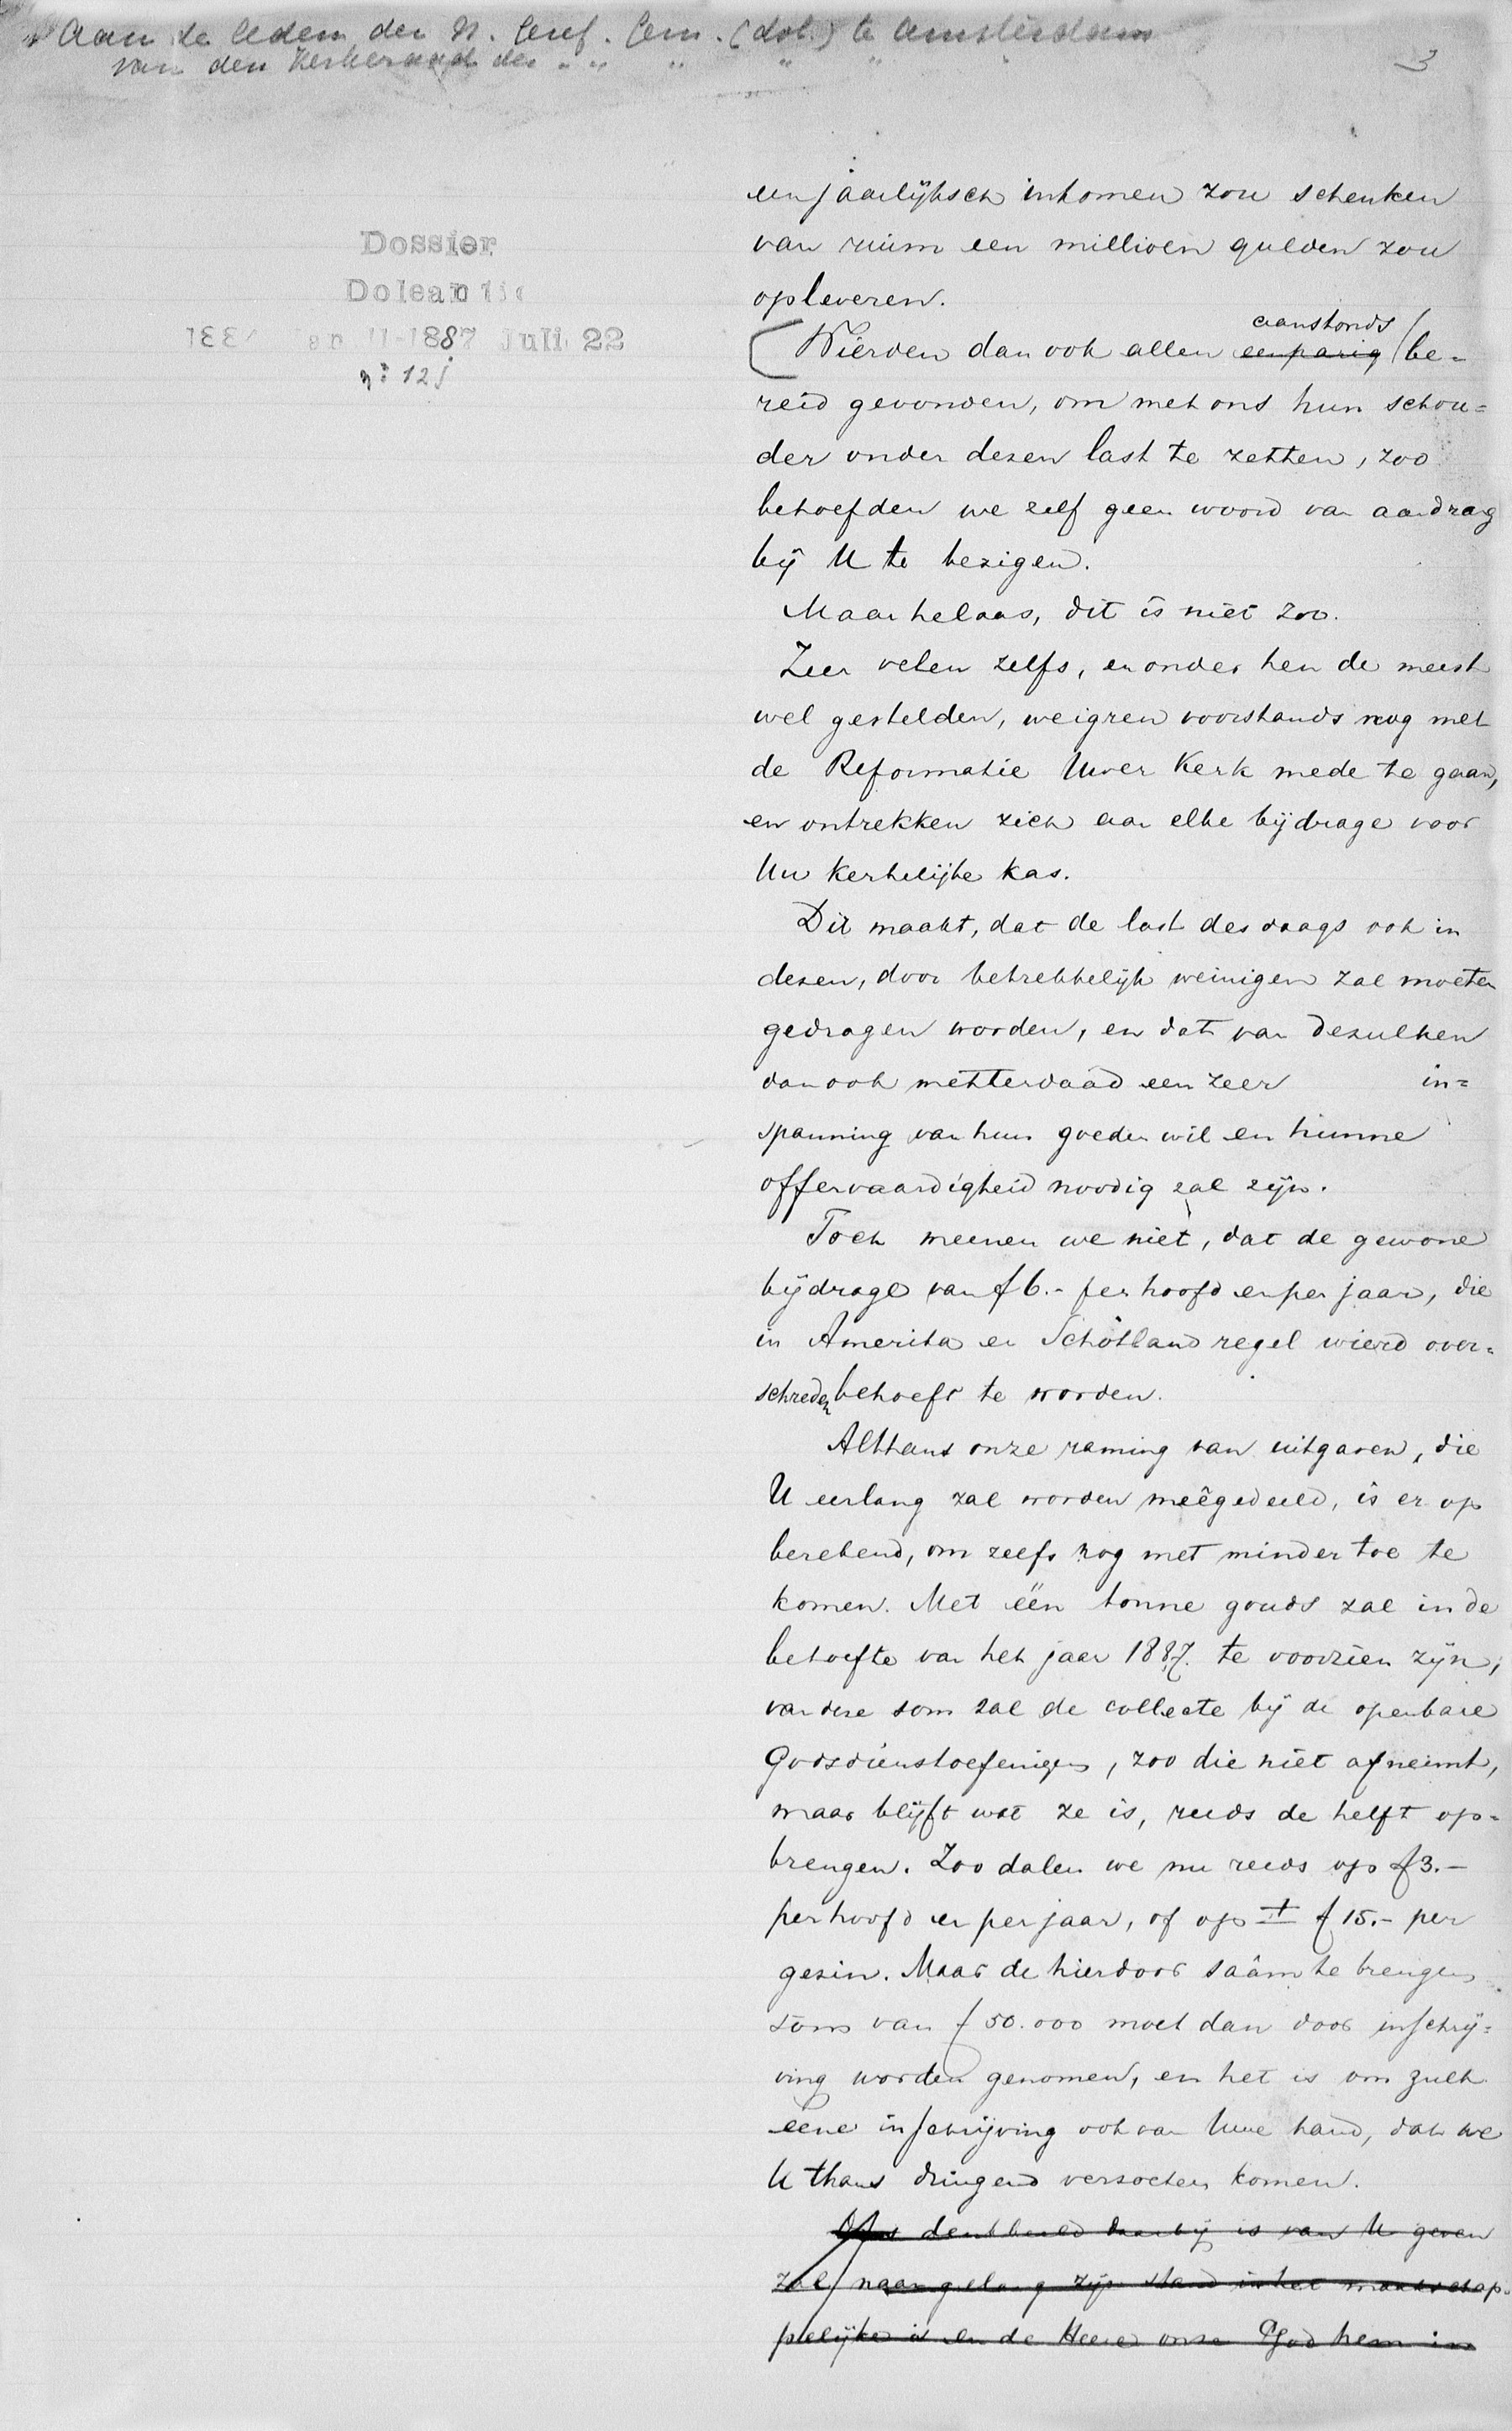 Aan de leden der N. Geref. Gem. (dol.) te Amsterdam
van den Kerkeraad der " " " " " "
3
Dossier
Doleantie
1887 Juli 22
no 12j
een jaarlijksch inkomen zou schenken
van ruim een millioen gulden zou
opleveren.
aanstonds
Wierden dan ook allen eenparig be-
reid gevonden, om met ons hun schou-
der onder dezen last te zetten, zoo
behoefden we zelf geen woord van aandrang
bij U te bezigen.
Maar helaas, dit is niet zoo.
Zeer velen zelfs, en onder hen de meest
wel gestelden, weigren voorshands nog met
de Reformatie Uwer Kerk mede te gaan,
en ontrekken zich aan elke bijdrage voor
Uw Kerkelijke kas.
Dit maakt, dat de last des daags ook in
dezen, door betrekkelijk weinigen zal moeten
gedragen worden, en dat van dezulken
dan ook metterdaad een zeer in-
spanning van hun goeden wil en hunne
offervaardigheid noodig zal zijn.
Toch meenen we niet, dat de gewone
bijdrage van f 6.- per hoofd en per jaar, die
in Amerika en Schotland regel wierd over-
schreden behoeft te worden.
Althans onze raming van uitgaven, die
U eerlang zal worden meêgedeeld, is er op
berekend, om zelfs nog met minder toe te
komen. Met één tonne gouds zal in de
behoefte van het jaar 1887 te voorzien zijn,
van deze som zal de collecte bij de openbare
Godsdienstoefeningen, zoo die niet afneemt,
maar blijft wat ze is, reeds de helft op-
brengen. Zoo dalen we nu reeds op f 3.-
per hoofd en per jaar, of op ± f 15.- per
gezin. Maar de hierdoor saâm te brengen
som van f 50.000 moet dan door inschrij-
ving worden genomen, en het is om zulk
eene inschrijving ook van Uwe hand, dat we
U thans dringend verzoeken komen.
denkbeeld daarbij is van U geven
zal naar gelang zijn stand in het maatschap-
pelijke is en de Heere onze God hem in